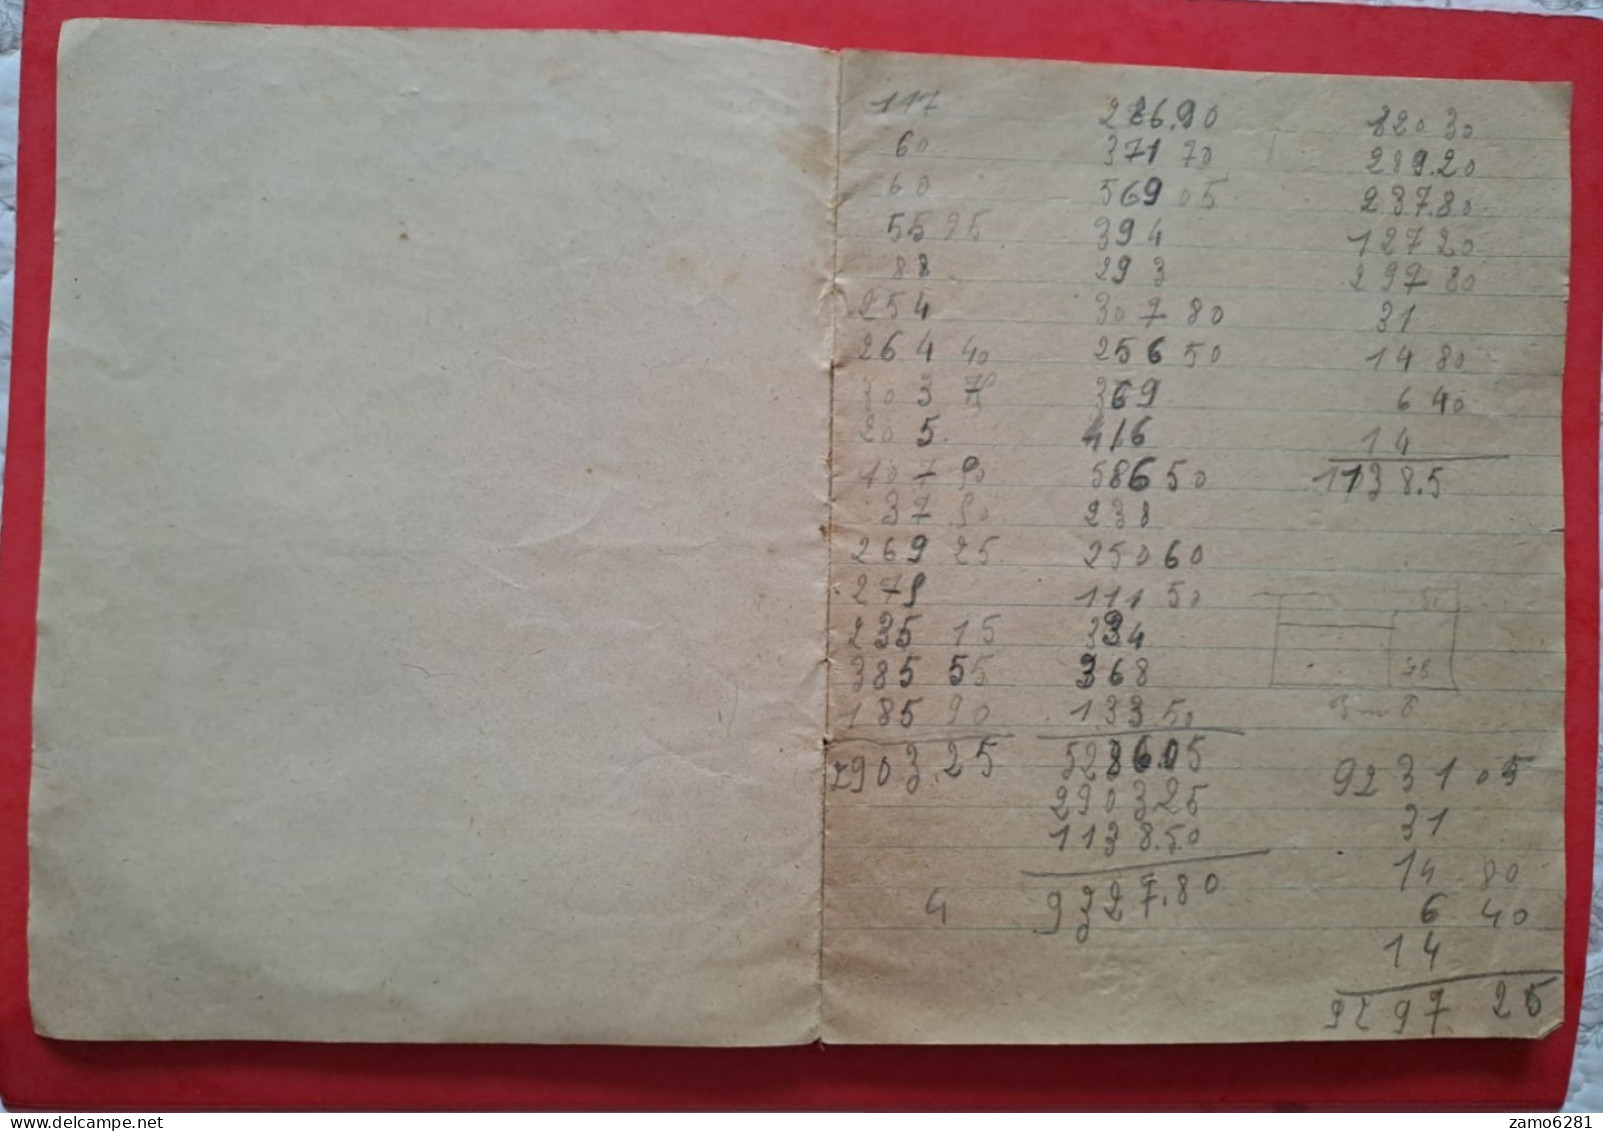 117
60
60
55 95
88
254
264 40
303 75
205
107 90
37 50
269 25
279
235 15
385 55
185 90
2903.25
4
286.90
371 70
569 05
394
293
307 80
256 50
369
416
586 50
238
250 60
111 50
334
368
133 50
5286.05
2903 25
1138.50
9327.80
120 30
289.20
237.80
127 20
297 80
31
14 80
6 40
14
1138.5
9231 05
31
14 80
6 40
14
9297 25
delcampe.net
zamo6281